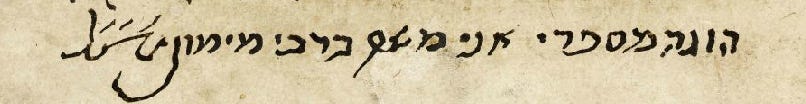 הוגה מספרי אני משה ברבי מימון זצ״ל